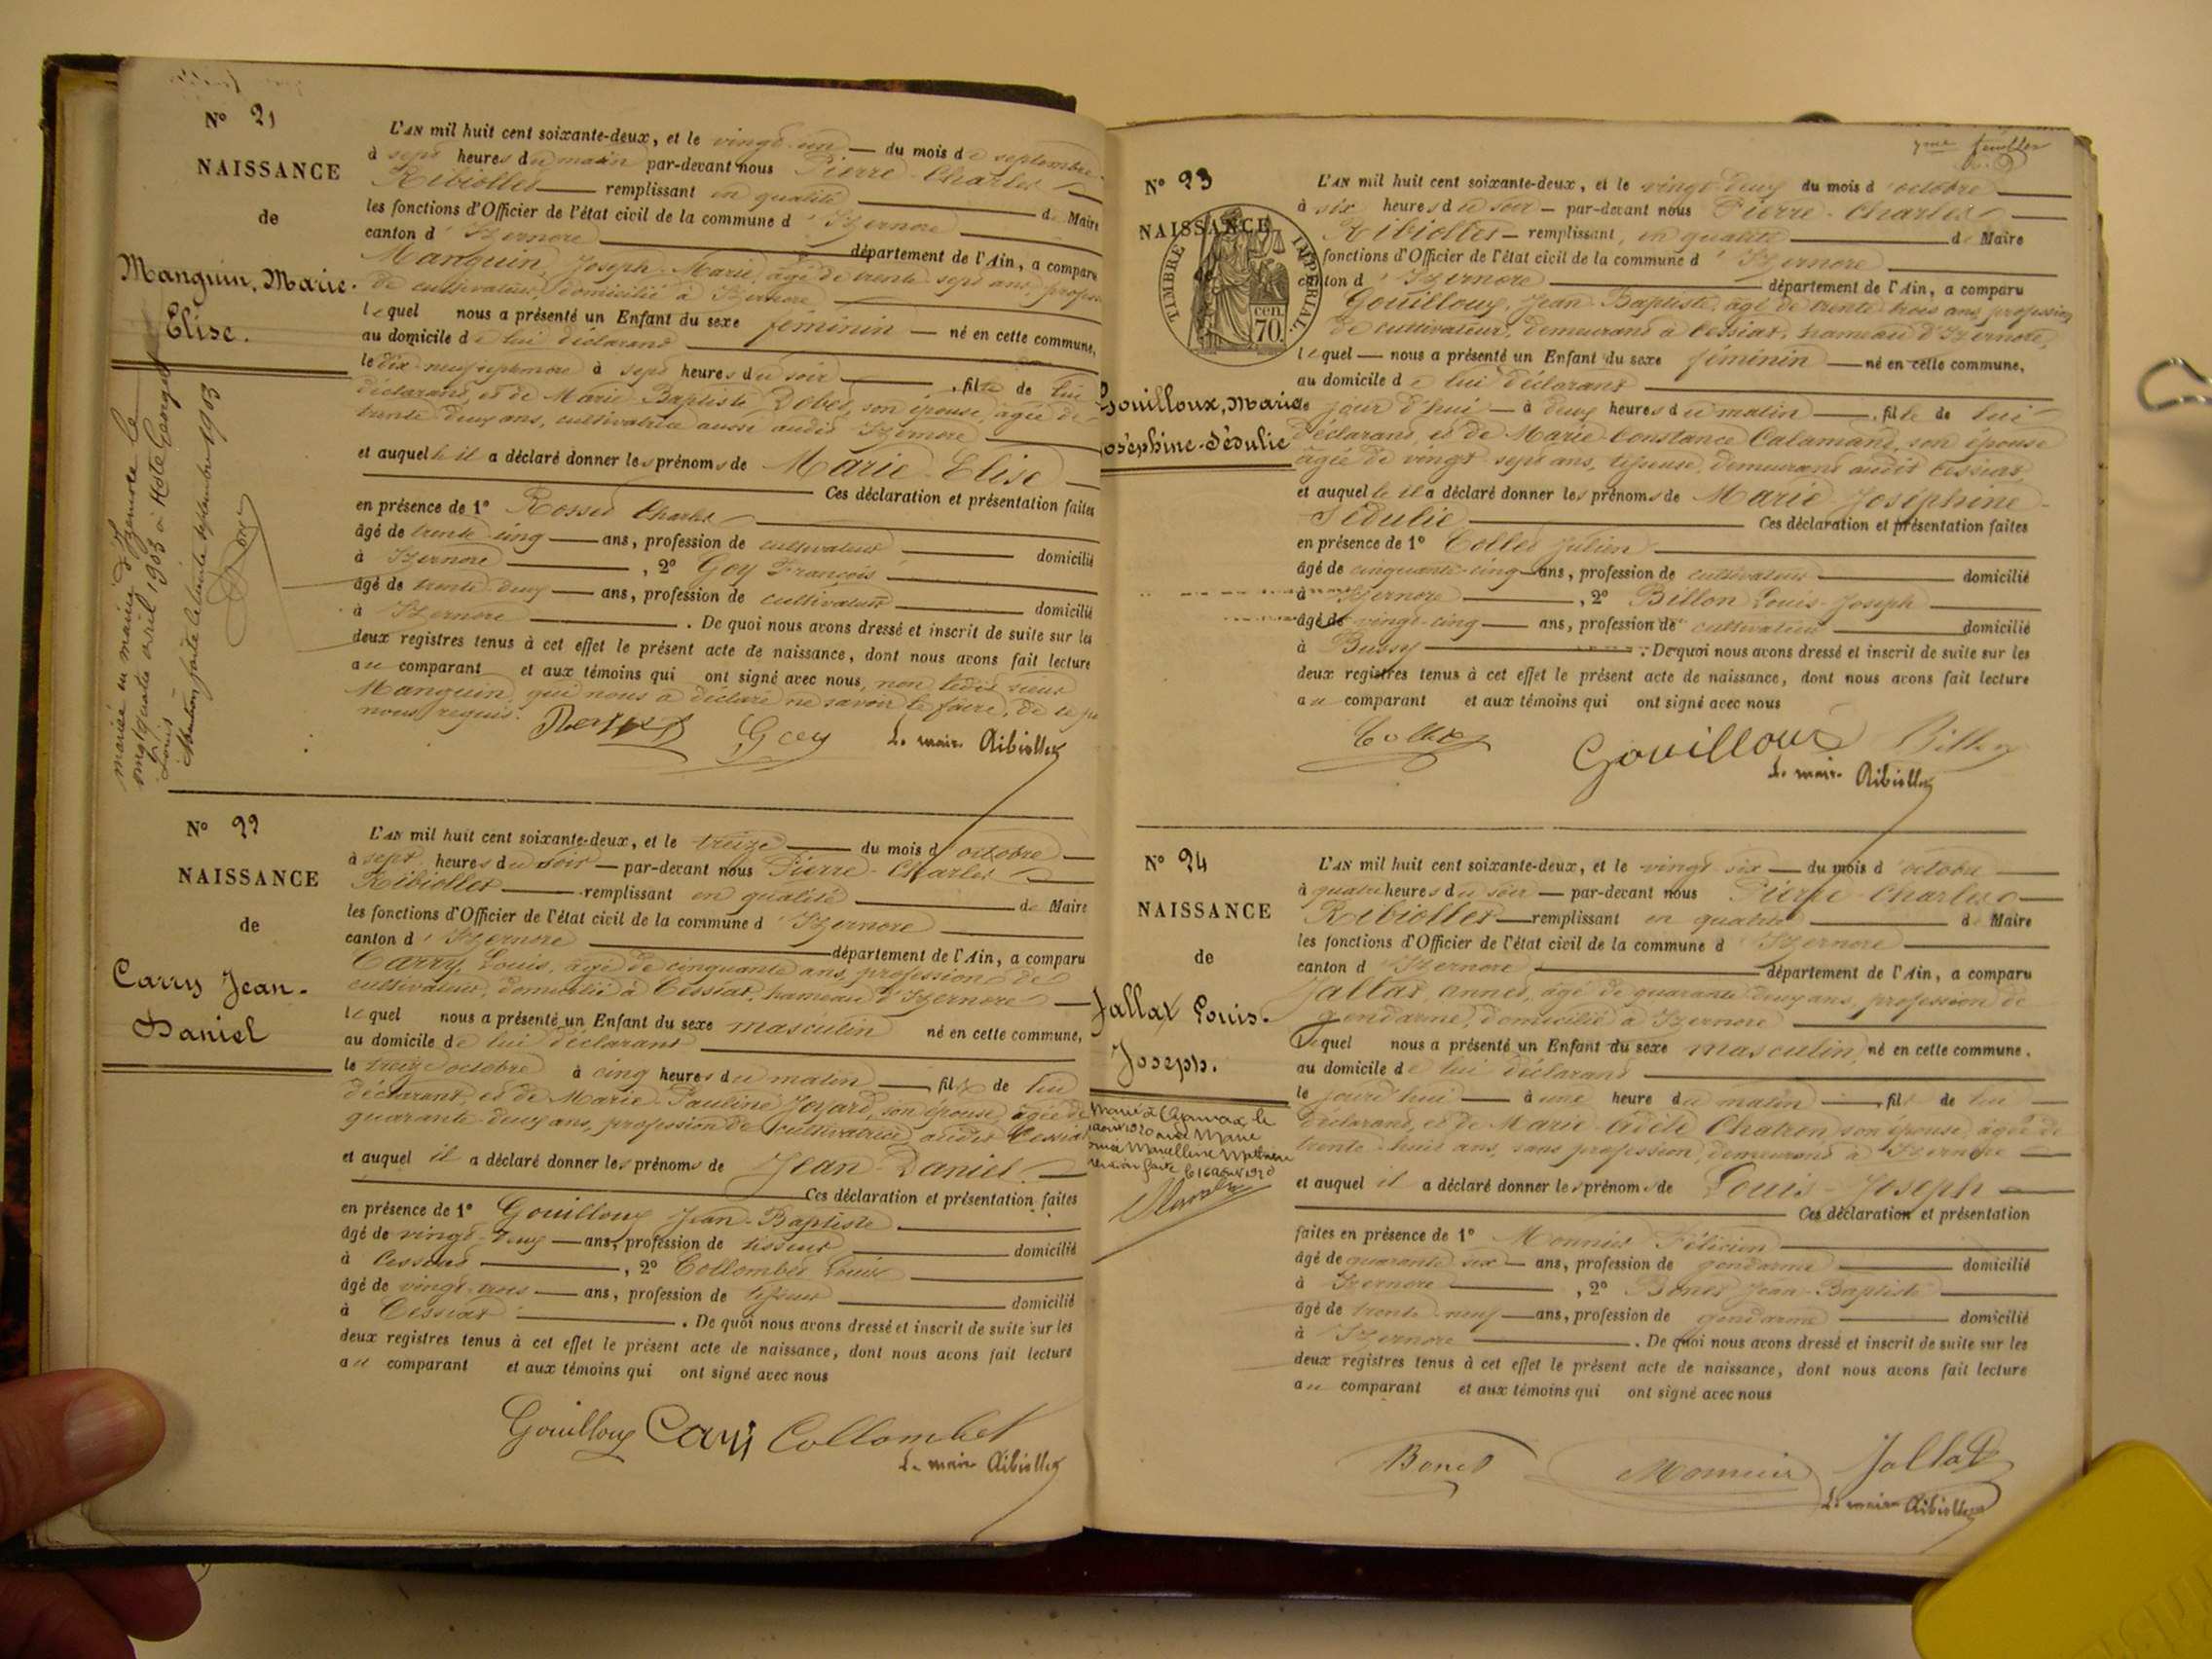 N° 21
NAISSANCE
de
Manguin, Marie-
Elise.
mariée en mairie d'Izernore le
vingt quatre avril 1903 à Hote Georges
Louis
Mention faite le trente septembre 1903
L'AN mil huit cent soixante-deux, et le vingt-un du mois de septembre
à sept heures du matin par-devant nous Pierre-Charles
Ribiollet remplissant en qualité de Maire
les fonctions d'Officier de l'état civil de la commune d'Izernore
canton d'Izernore département de l'Ain, a comparu
Manguin, Joseph-Marie, âgé de trente-sept ans, profession
de cultivateur, domicilié à Izernore
lequel nous a présenté un Enfant du sexe féminin né en cette commune,
au domicile de lui déclarant
le dix-neuf septembre à sept heures du soir, fille de lui
déclarant, et de Marie-Baptiste Debet, son épouse, âgée de
trente-deux ans, cultivatrice aussi audit Izernore
et auquel le il a déclaré donner les prénoms de Marie-Elise
Ces déclaration et présentation faites
en présence de 1° Rosset Charles
âgé de trente-cinq ans, profession de cultivateur domicilié
à Izernore, 2° Goy François
âgé de trente-deux ans, profession de cultivateur domicilié
à Izernore. De quoi nous avons dressé et inscrit de suite sur les
deux registres tenus à cet effet le présent acte de naissance, dont nous avons fait lecture
au comparant et aux témoins qui ont signé avec nous, non ledit sieur
Manguin, qui nous a déclaré ne savoir le faire, de ce par
nous requis.
Rosset Goy Le maire Ribiollet
N° 22
NAISSANCE
de
Carry Jean-
Daniel
L'AN mil huit cent soixante-deux, et le treize du mois d'octobre
à sept heures du soir par-devant nous Pierre-Charles
Ribiollet remplissant en qualité de Maire
les fonctions d'Officier de l'état civil de la commune d'Izernore
canton d'Izernore département de l'Ain, a comparu
Carry, Louis, âgé de cinquante ans, profession de
cultivateur, domicilié à Cessiat, hameau d'Izernore
lequel nous a présenté un Enfant du sexe masculin né en cette commune,
au domicile de lui déclarant
le treize octobre à cinq heures du matin, fils de lui
déclarant, et de Marie-Pauline Joyard, son épouse, âgée de
quarante-deux ans, profession de cultivatrice, audit Cessiat
et auquel il a déclaré donner les prénoms de Jean-Daniel
Ces déclaration et présentation faites
en présence de 1° Gouilloux Jean-Baptiste
âgé de vingt-deux ans, profession de tisseur domicilié
à Cessiat, 2° Collombet Louis
âgé de vingt ans ans, profession de tisseur domicilié
à Cessiat. De quoi nous avons dressé et inscrit de suite sur les
deux registres tenus à cet effet le présent acte de naissance, dont nous avons fait lecture
au comparant et aux témoins qui ont signé avec nous
Gouilloux Cary Collombet
Le maire Ribiollet
feuillet
N° 23
NAISSANCE
TIMBRE IMPERIAL
cen.
70.
Gouilloux, Marie
Joséphine-Sédulie
L'AN mil huit cent soixante-deux, et le vingt-deux du mois d'octobre
à six heures du soir par-devant nous Pierre-Charles
Ribiollet remplissant, en qualité de Maire
fonctions d'Officier de l'état civil de la commune d'Izernore
canton d'Izernore département de l'Ain, a comparu
Gouilloux, Jean-Baptiste, âgé de trente-trois ans, profession
de cultivateur, demeurant à Cessiat, hameau d'Izernore,
lequel nous a présenté un Enfant du sexe féminin né en cette commune,
au domicile de lui déclarant
le jour d'hui à deux heures du matin, fille de lui
déclarant, et de Marie-Constance Calamand, son épouse
âgée de vingt-sept ans, tisseuse, demeurant audit Cessiat,
et auquel le il a déclaré donner les prénoms de Marie-Joséphine-
Sédulie Ces déclaration et présentation faites
en présence de 1° Collet Julien
âgé de cinquante-cinq ans, profession de cultivateur domicilié
à Izernore, 2° Billon Louis-Joseph
âgé de vingt-cinq ans, profession de cultivateur domicilié
à Bussy. De quoi nous avons dressé et inscrit de suite sur les
deux registres tenus à cet effet le présent acte de naissance, dont nous avons fait lecture
au comparant et aux témoins qui ont signé avec nous
Collet Gouilloux Billon
Le maire Ribiollet
N° 24
NAISSANCE
de
Jallat Louis-
Joseph.
Marié à le
août 1920 avec Marie
Marcelline
mention faite le 16 août 1920
L'AN mil huit cent soixante-deux, et le vingt-six du mois d'octobre
à quatre heures du soir par-devant nous Pierre-Charles
Ribiollet remplissant en qualité de Maire
les fonctions d'Officier de l'état civil de la commune d'Izernore
canton d'Izernore département de l'Ain, a comparu
Jallat, Annet, âgé de quarante-deux ans, profession de
gendarme, domicilié à Izernore
lequel nous a présenté un Enfant du sexe masculin né en cette commune.
au domicile de lui déclarant
le jourd'hui à une heure du matin, fils de lui
déclarant, et de Marie-Adèle Chatron, son épouse, âgée de
trente-huit ans, sans profession, demeurant à Izernore
et auquel il a déclaré donner les prénoms de Louis-Joseph
Ces déclaration et présentation
faites en présence de 1° Monnier Félicien
âgé de quarante-six ans, profession de gendarme domicilié
à Izernore, 2° Bonet Jean-Baptiste
âgé de trente-neuf ans, profession de gendarme domicilié
à Izernore. De quoi nous avons dressé et inscrit de suite sur les
deux registres tenus à cet effet le présent acte de naissance, dont nous avons fait lecture
au comparant et aux témoins qui ont signé avec nous
Bonet Monnier Jallat
Le maire Ribiollet